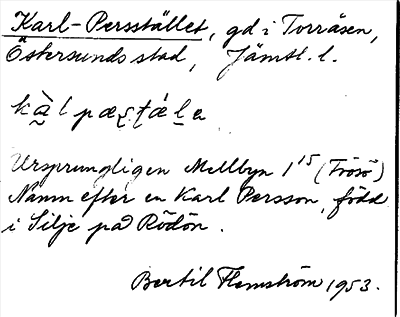 Karl-Persstället, gd i Torråsen,
Östersunds stad, Jämtl. l.
Ursprungligen Mellbyn 1¹⁵ (Frösö)
Namn efter en Karl Persson, född
i Silje på Rödön.
Bertil Flemström 1953.